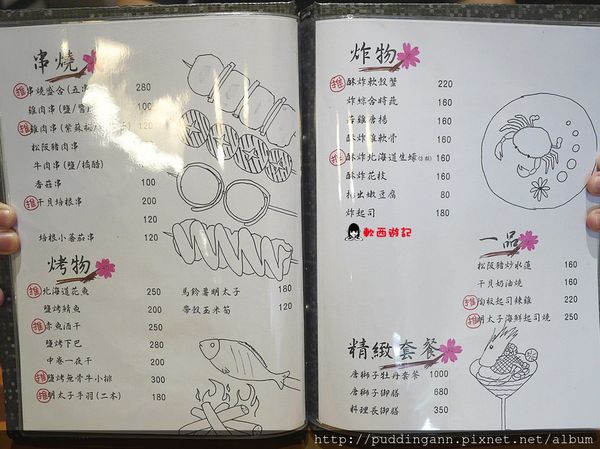 串燒
推 串燒盛合(五串 280
雞肉串(鹽/醬) 100
推 雞肉串(紫蘇 120
松阪豬肉串
牛肉串(鹽/橘醋)
香菇串 100
推 干貝培根串 200
120
培根小番茄串 120
烤物
推 北海道花魚 250
鹽烤鯖魚 200
推 赤魚酒干 250
鹽烤下巴
中卷一夜干 200
推 鹽烤無骨牛小排 300
推 明太子手羽(二本) 180
馬鈴薯明太子 180
帶殼玉米筍 120
炸物
推 酥炸軟殼蟹 220
炸綜合時蔬 160
雞唐揚 160
軟骨 160
推 酥炸北海道生蠔 160
酥炸花枝 160
揚出嫩豆腐 80
炸起司 180
軟西遊記
一品
松阪豬炒水蓮 160
干貝奶油燒 160
推 起司辣雞 220
推 明太子海鮮起司燒 250
精緻套餐
唐獅子牡丹套餐 1000
唐獅子御膳 680
料理長御膳 350
http://puddingann.pixnet.net/album